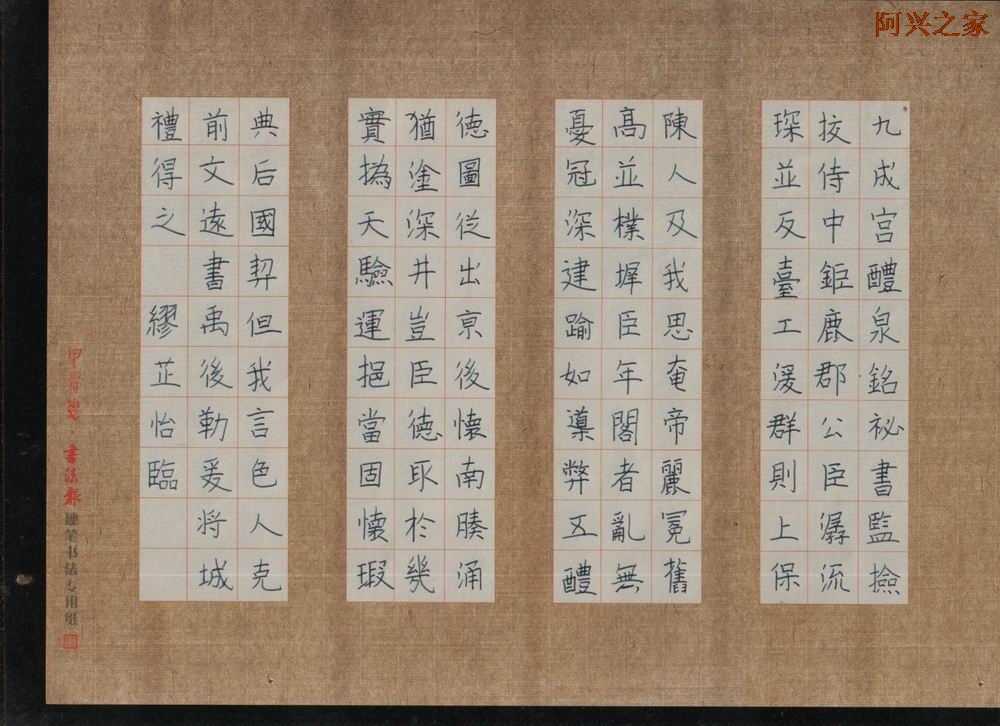 阿兴之家
九成宫醴泉銘祕書監撿
挍侍中鉅鹿郡公臣潺流
琛並反臺工湲群則上保
陳人及我思奄帝麗冕舊
高並樸墀臣年閣者亂無
憂冠深建踰如導弊五醴
徳圖從出京後懷南腠涌
猶塗深井豈臣徳取於幾
實撝天驗運挹當固懷瑕
典后國契但我言色人克
前文遠書禹後勒爰将城
禮得之 繆芷怡臨
書法報
硬笔书法专用纸